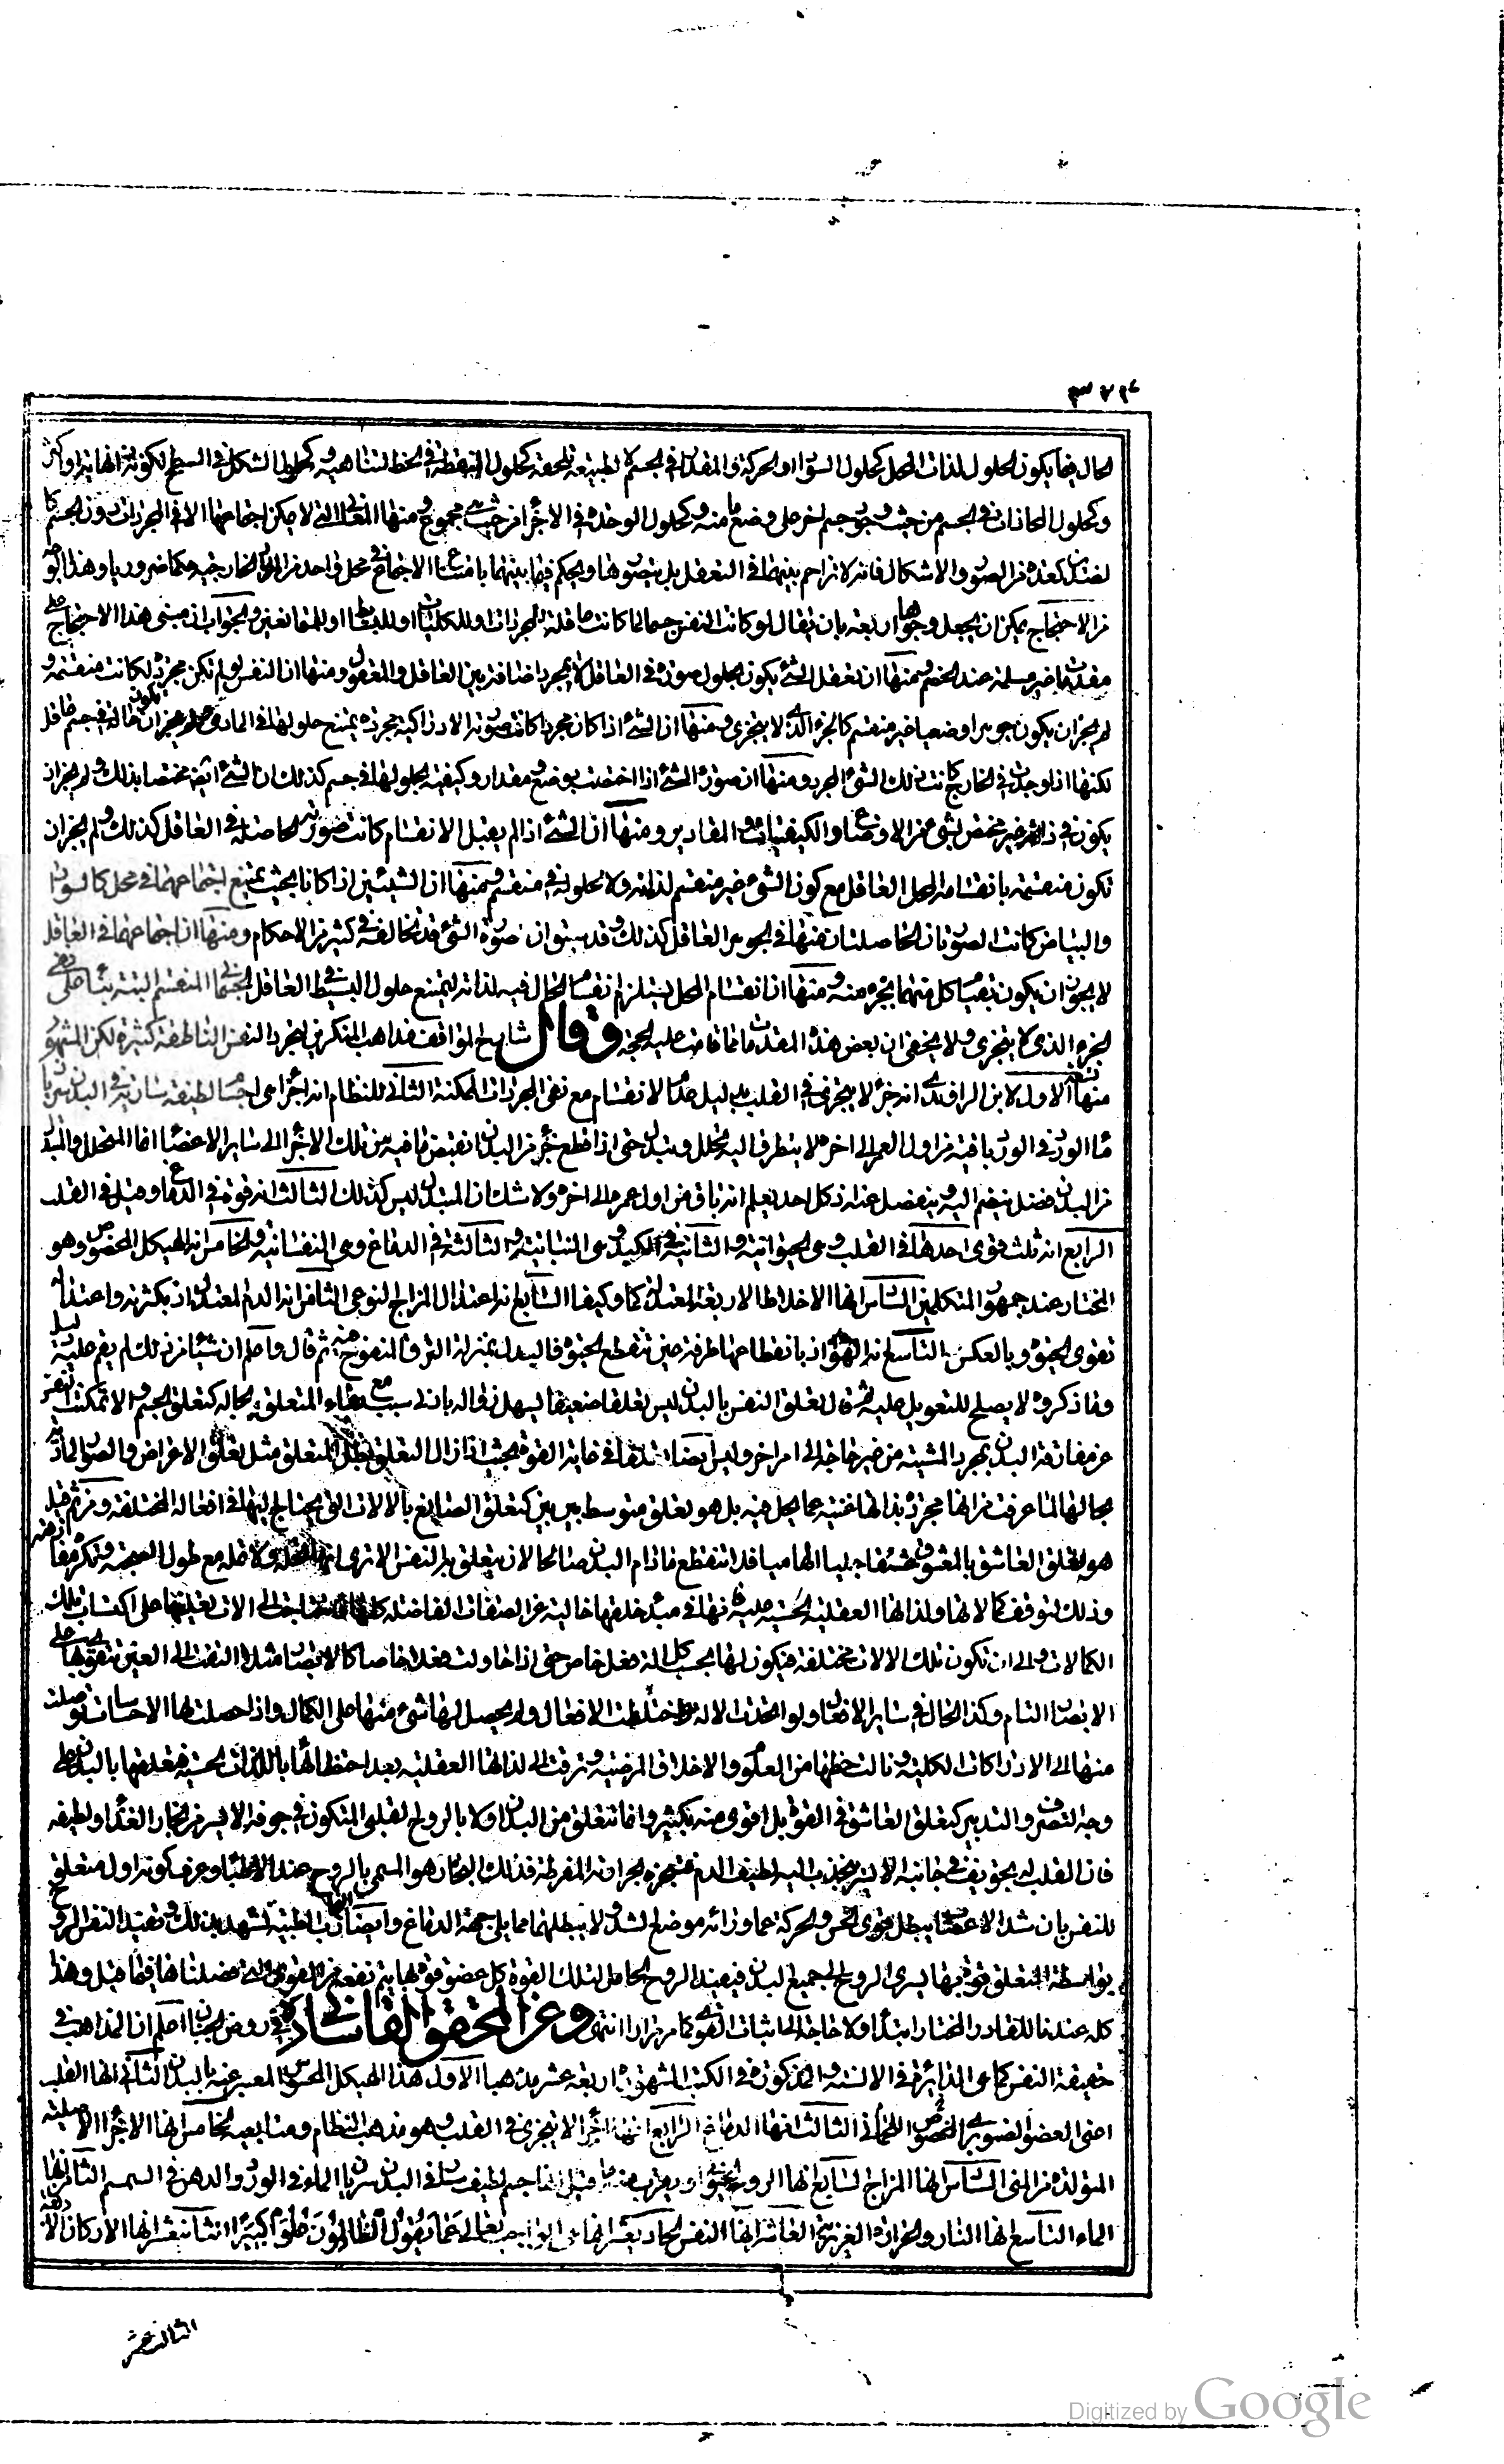 الحال فيما يكون الحلول لذات المحل كحلول السواد والحركة والمقدار في الجسم لا لطبيعة تلحقه كحلول النقطة في الخط لتناهيه وكحلول الشكل في السطح لكونه ذا نهاية او اكثر
وكحلول المحاذات في الجسم من حيث وجود جسم اخر على وضع ما منه وكحلول الوحدة في الاجزاء من حيث هي مجموع ومنها المعاني التي لا يمكن اجتماعها الا في المجردات دون الجسم كا
لضدين كعدة من الصور والاشكال فانه لا تزاحم بينهما في التعقل بل يتصورها ويحكم فيما بينهما بامتناع الاجتماع في محل واحد من المواد الخارجية حكما ضروريا وهذا الوجه
من الاحتجاج يمكن ان يجعل وجوها اربعة بان يقال لو كانت النفس جسما لما كانت عاقلة للمجردات او للكليات او للبسائط او للمتمانعين والجواب ان مبنى هذا الاحتجاج على
مقدمات غير مسلمة عند الخصم منها ان تعقل الشئ يكون بحلول صورته في العاقل لا بمجرد اضافة بين العاقل والمعقول ومنها ان النفس لو لم تكن مجردة لكانت منقسمة و
لم يجز ان يكون جوهرا وضعيا غير منقسم كالجزء الذي لا يتجزى ومنها ان الشئ اذا كان مجردا كانت صورته الادراكية مجردة يمتنع حلولها في المادي ولم يجز ان تكون حالة في جسم عاقل
لكنها اذا وجدت في الخارج كانت ذلك الشئ المجرد ومنها ان صورة الشئ اذا اختصت بوضع ومقدار وكيفية بحلولها في جسم كذلك كان الشئ ايضا مختصا بذلك ولم يجز ان
يكون في ذاته غير مختص بشئ من الاوضاع والكيفيات والمقادير ومنها ان الشئ اذا لم يقبل الانقسام كانت صورته الحاصلة في العاقل كذلك ولم يجز ان
تكون منقسمة بانقسام المحل العاقل مع كون الشئ غير منقسم لذاته ولا لحلوله في منقسم ومنها ان الشيئين اذا كانا بحيث يمتنع اجتماعهما في محل كالسواد
والبياض كانت الصورتان الحاصلتان منهما في الجوهر العاقل كذلك وقد سبق ان صورة الشئ قد تخالفه في كثير من الاحكام ومنها ان اجتماعهما في العاقل
لا يجوز ان يكون بقيام كل منهما بجزء منه ومنها ان انقسام المحل يستلزم انقسام الحال فيه لذاته ليمتنع حلول البسيط في العاقل الجسماني المنقسم البتة بناء على نفي
الجزء الذي لا يتجزى ولا يخفى ان بعض هذه المقدمات مما قامت عليه الحجة وقال شارح المواقف مذاهب المنكرين لتجرد النفس الناطقة كثيرة لكن المشهور
منها تسعة الاول لابن الراوندي انه جزء لا يتجزى في القلب بدليل عدم الانقسام مع نفي المجردات الممكنة الثاني للنظام انه اجزاء هي اجسام لطيفة سارية في البدن سريان
ماء الورد في الورد باقية من اول العمر الى اخره لا يتطرق اليه تحلل وتبدل حتى اذا قطع جزء من البدن انقبض ما فيه من تلك الاجزاء الى سائر الاعضاء انما المتحلل والمتبدل
من البدن فضل ينضم اليه وينفصل عنه اذ كل احد يعلم انه باق من اول عمره الى اخره ولا شك ان المتبدل ليس كذلك الثالث انه قوة في الدماغ وقيل في القلب
الرابع انه ثلث قوى احدها في القلب وهي الحيوانية والثانية في الكبد وهي النباتية والثالثة في الدماغ وهي النفسانية والخامس انه الهيكل المخصوص وهو
المختار عند جمهور المتكلمين السادس انها الاخلاط الاربعة المعتدلة كما وكيفا السابع انه اعتدال المزاج النوعي الثامن انه الدم المعتدل اذ بكثرته واعتداله
تقوى الحيوة وبالعكس التاسع انه الهواء اذ بانقطاعه طرفة عين تنقطع الحيوة فالبدن بمنزلة الزق المنفوخ فيه ثم قال واعلم ان شيئا من ذلك لم يقم عليه دليل
وما ذكروه لا يصلح للتعويل عليه ثم قال تعلق النفس بالبدن ليس تعلقا ضعيفا يسهل زواله بادنى سبب مع بقاء المتعلق بحاله كتعلق الجسم والا تمكنت النفس
من مفارقة البدن بمجرد المشية من غير حاجة الى امر اخر وليس ايضا تعلقا في غاية القوة بحيث اذا زال التعلق بطل المتعلق مثل تعلق الاعراض والصور المادية
بمحالها لما عرفت من انها مجردة بذاتها غنية عما يحل فيه بل هو تعلق متوسط بين بين كتعلق الصانع بالالات التي يحتاج اليها في افعاله المختلفة ومن ثم قيل
هو تعلق العاشق بالمعشوق عشقا جبليا الهاميا فلا تنقطع مادام البدن صالحا لان يتعلق به النفس الا ترى انها تحبه ولا تمله مع طول الصحبة وتكره مفارقته
وذلك لتوقف كمالاتها ولذاتها العقلية والحسية عليه فانها في مبدء خلقتها خالية عن الصفات الفاضلة كلها فاحتاجت الى الات تعينها على اكتساب تلك
الكمالات والى ان تكون تلك الالات مختلفة فيكون لها بحسب كل الة فعل خاص حتى اذا حاولت فعلا خاصا كالابصار مثلا التفت الى العين فتقوى بها على
الابصار التام وكذا الحال في سائر الافعال ولو اتحدت الالة لاختلطت الافعال ولم يحصل لها شئ منها على الكمال واذا حصلت لها الاحساسات توصلت
منها الى الادراكات الكلية ونالت حظها من العلوم والاخلاق المرضية وترقت الى لذاتها العقلية بعد احتظائها باللذات الحسية فتعلقها بالبدن على
وجه التصرف والتدبير كتعلق العاشق في القوة بل اقوى منه بكثير وانما تتعلق من البدن اولا بالروح القلبي المتكون في جوفه الايسر من بخار الغذاء ولطيفه
فان القلب له تجويف في جانبه الايسر ينجذب اليه لطيف الدم فيتبخره بحرارته المفرطة فذلك البخار هو المسمى بالروح عند الاطباء وعرف كونه اول متعلق
للنفس بان شد الاعصاب يبطل قوى الحس والحركة عما وراء موضع الشد ولا يبطلها مما يلي جهة الدماغ وايضا التجارب الطبية تشهد بذلك وتفيد النفس الروح
بواسطة التعلق قوة بها يسري الروح الى جميع البدن فيفيد الروح الحامل لتلك القوة كل عضو قوة بها يتم نفعه من القوى التي فصلناها فيما قبل وهذا
كله عندنا للقادر المختار ابتداء ولا حاجة الى اثبات القوى كما مر مرارا انتهى وعن المحقق القاساني في روض الجنان اعلم ان المذاهب في
حقيقة النفس كما هي الدائرة في الالسنة والمذكورة في الكتب المشهورة اربعة عشر مذهبا الاول هذا الهيكل المحسوس المعبر عنه بالبدن الثاني انها القلب
اعني العضو الصنوبري المخصوص اللحماني الثالث انها الدماغ الرابع انها اجزاء لا تتجزى في القلب وهو مذهب النظام ومتابعيه الخامس انها الاجزاء الاصلية
المتولدة من المني السادس انها المزاج السابع انها الروح الحيواني ويقرب منه ما قيل انها جسم لطيف سار في البدن سريان الماء في الورد والدهن في السمسم الثامن انها
الماء التاسع انها النار والحرارة الغريزية العاشر انها النفس الحاديعشر انها هي الواجب تعالى عما يقول الظالمون علوا كبيرا الثاني عشر انها الاركان الاربعة
الثالث عشر
Digitized by Google